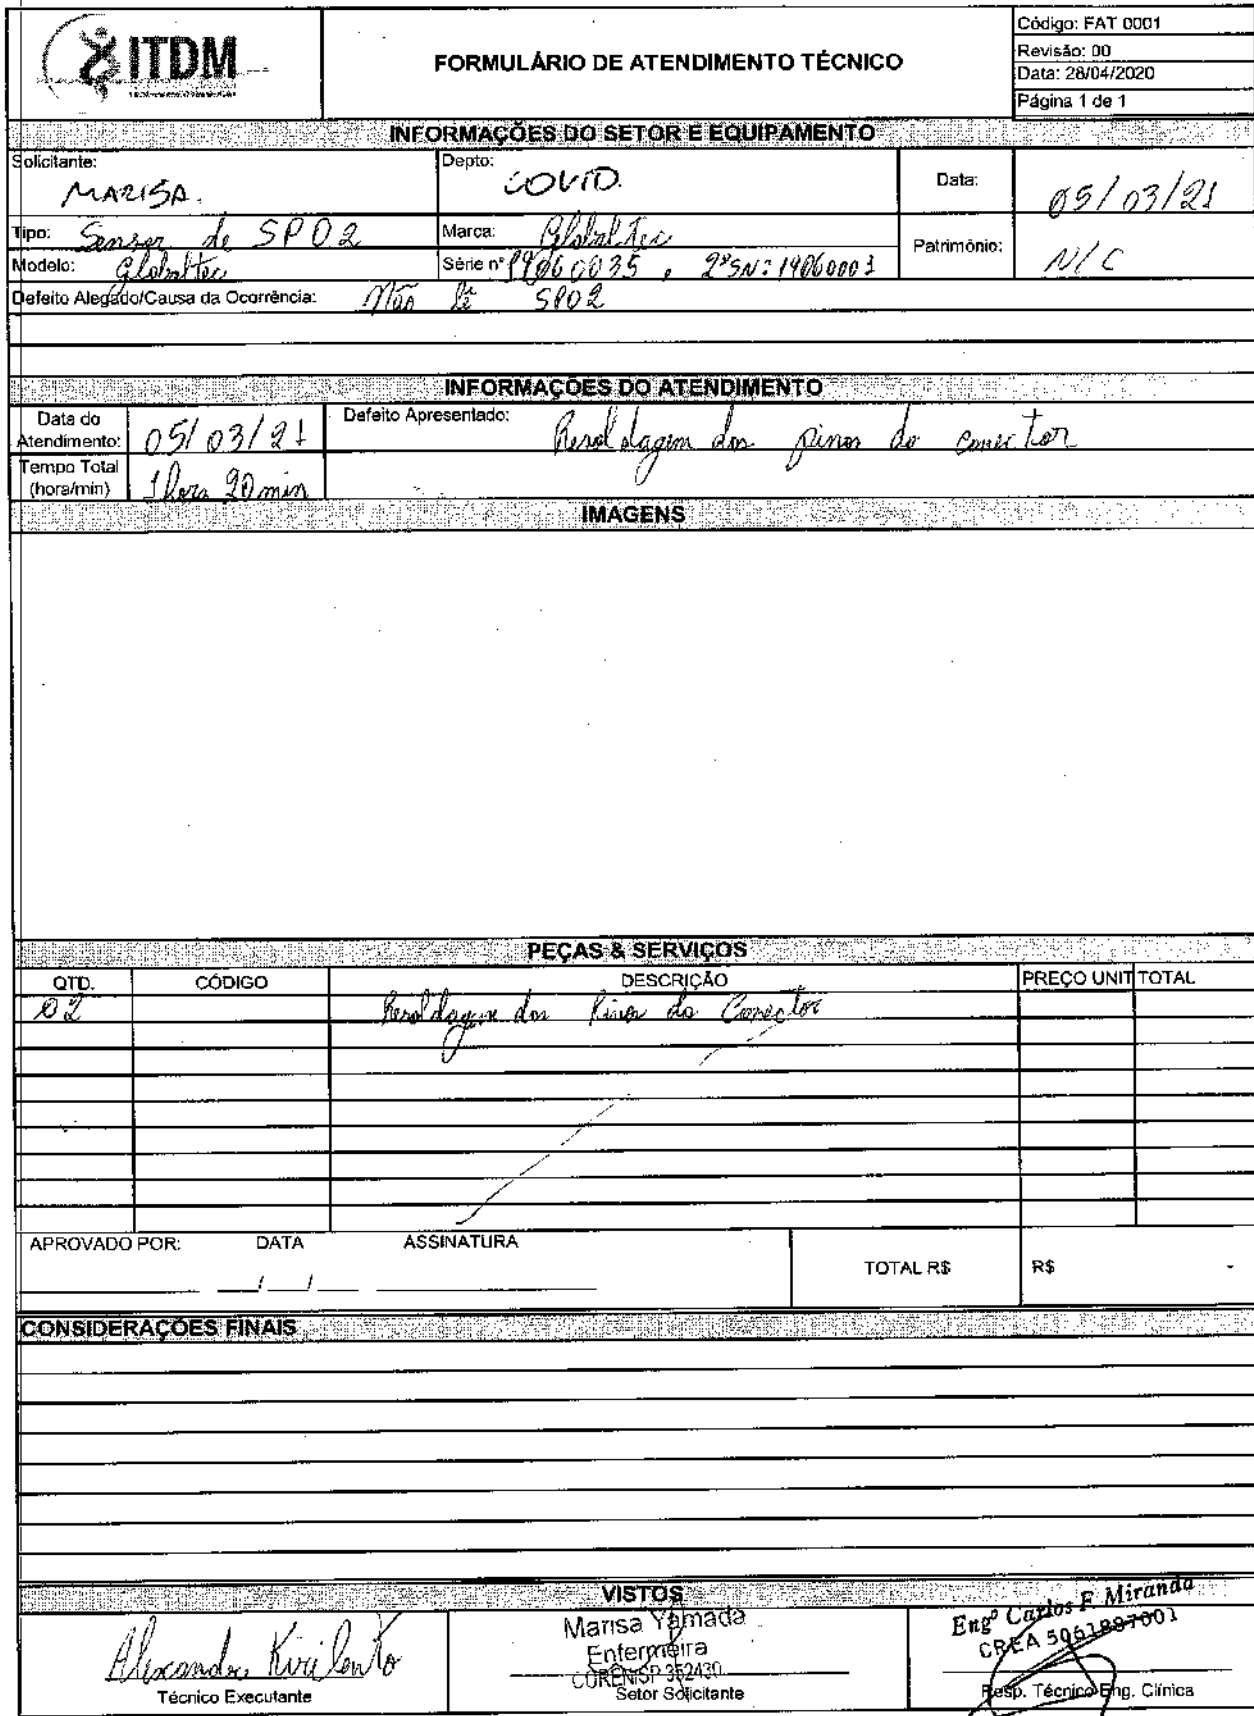 ITDM
FORMULÁRIO DE ATENDIMENTO TÉCNICO
Código: FAT 0001
Revisão: 00
Data: 28/04/2020
Página 1 de 1
INFORMAÇÕES DO SETOR E EQUIPAMENTO
Solicitante: MARISA.
Depto: COVID.
Data: 05/03/21
Tipo: Sensor de SPO2
Marca: Globaltec
Patrimônio: N/C
Modelo: Globaltec
Série nº 19060035, 2º SN: 19060001
Defeito Alegado/Causa da Ocorrência: Não lê SPO2
INFORMAÇÕES DO ATENDIMENTO
Data do Atendimento: 05/03/21
Defeito Apresentado: Resoldagem dos pinos do conector
Tempo Total (hora/min) 1 hora 20 min
IMAGENS
PEÇAS & SERVIÇOS
QTD. CÓDIGO DESCRIÇÃO PREÇO UNIT TOTAL
02 Resoldagem dos Pinos do Conector
APROVADO POR: DATA ASSINATURA
__/__/
TOTAL R$ R$ -
CONSIDERAÇÕES FINAIS
VISTOS
Alexandre Kirilenko
Técnico Executante
Marisa Yamada
Enfermeira
COREN/SP 352430
Setor Solicitante
Engº Carlos F. Miranda
CREA 5061887001
Resp. Técnico Eng. Clínica